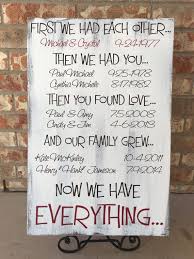 FIRST WE HAD EACH OTHER...
Michael & Crystal 9-24-1977
THEN WE HAD YOU...
Paul Michael 9-25-1978
Cynthia Michelle 8-17-1982
THEN YOU FOUND LOVE...
Paul & Amy 7-5-2008
Cindy & Jim 6-8-2013
AND OUR FAMILY GREW...
Kate McKinley 10-4-2011
Henry "Hank" Jameson 7-9-2014
NOW WE HAVE
EVERYTHING...